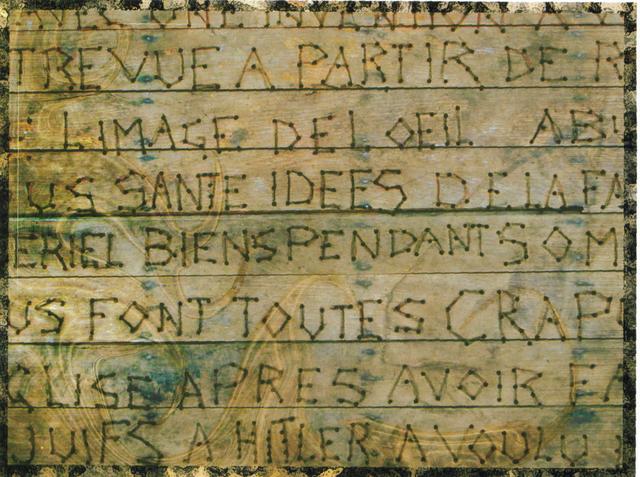 AVEC UNE INVENTION A V
TREVUE A PARTIR DE R
L IMAGE DE L OEIL ABU
US SANTE IDEES DE LA FA
ERIEL BIENS PENDANT SOM
US FONT TOUTES CRAP
GLISE APRES AVOIR FA
JUIFS A HITLER A VOULU